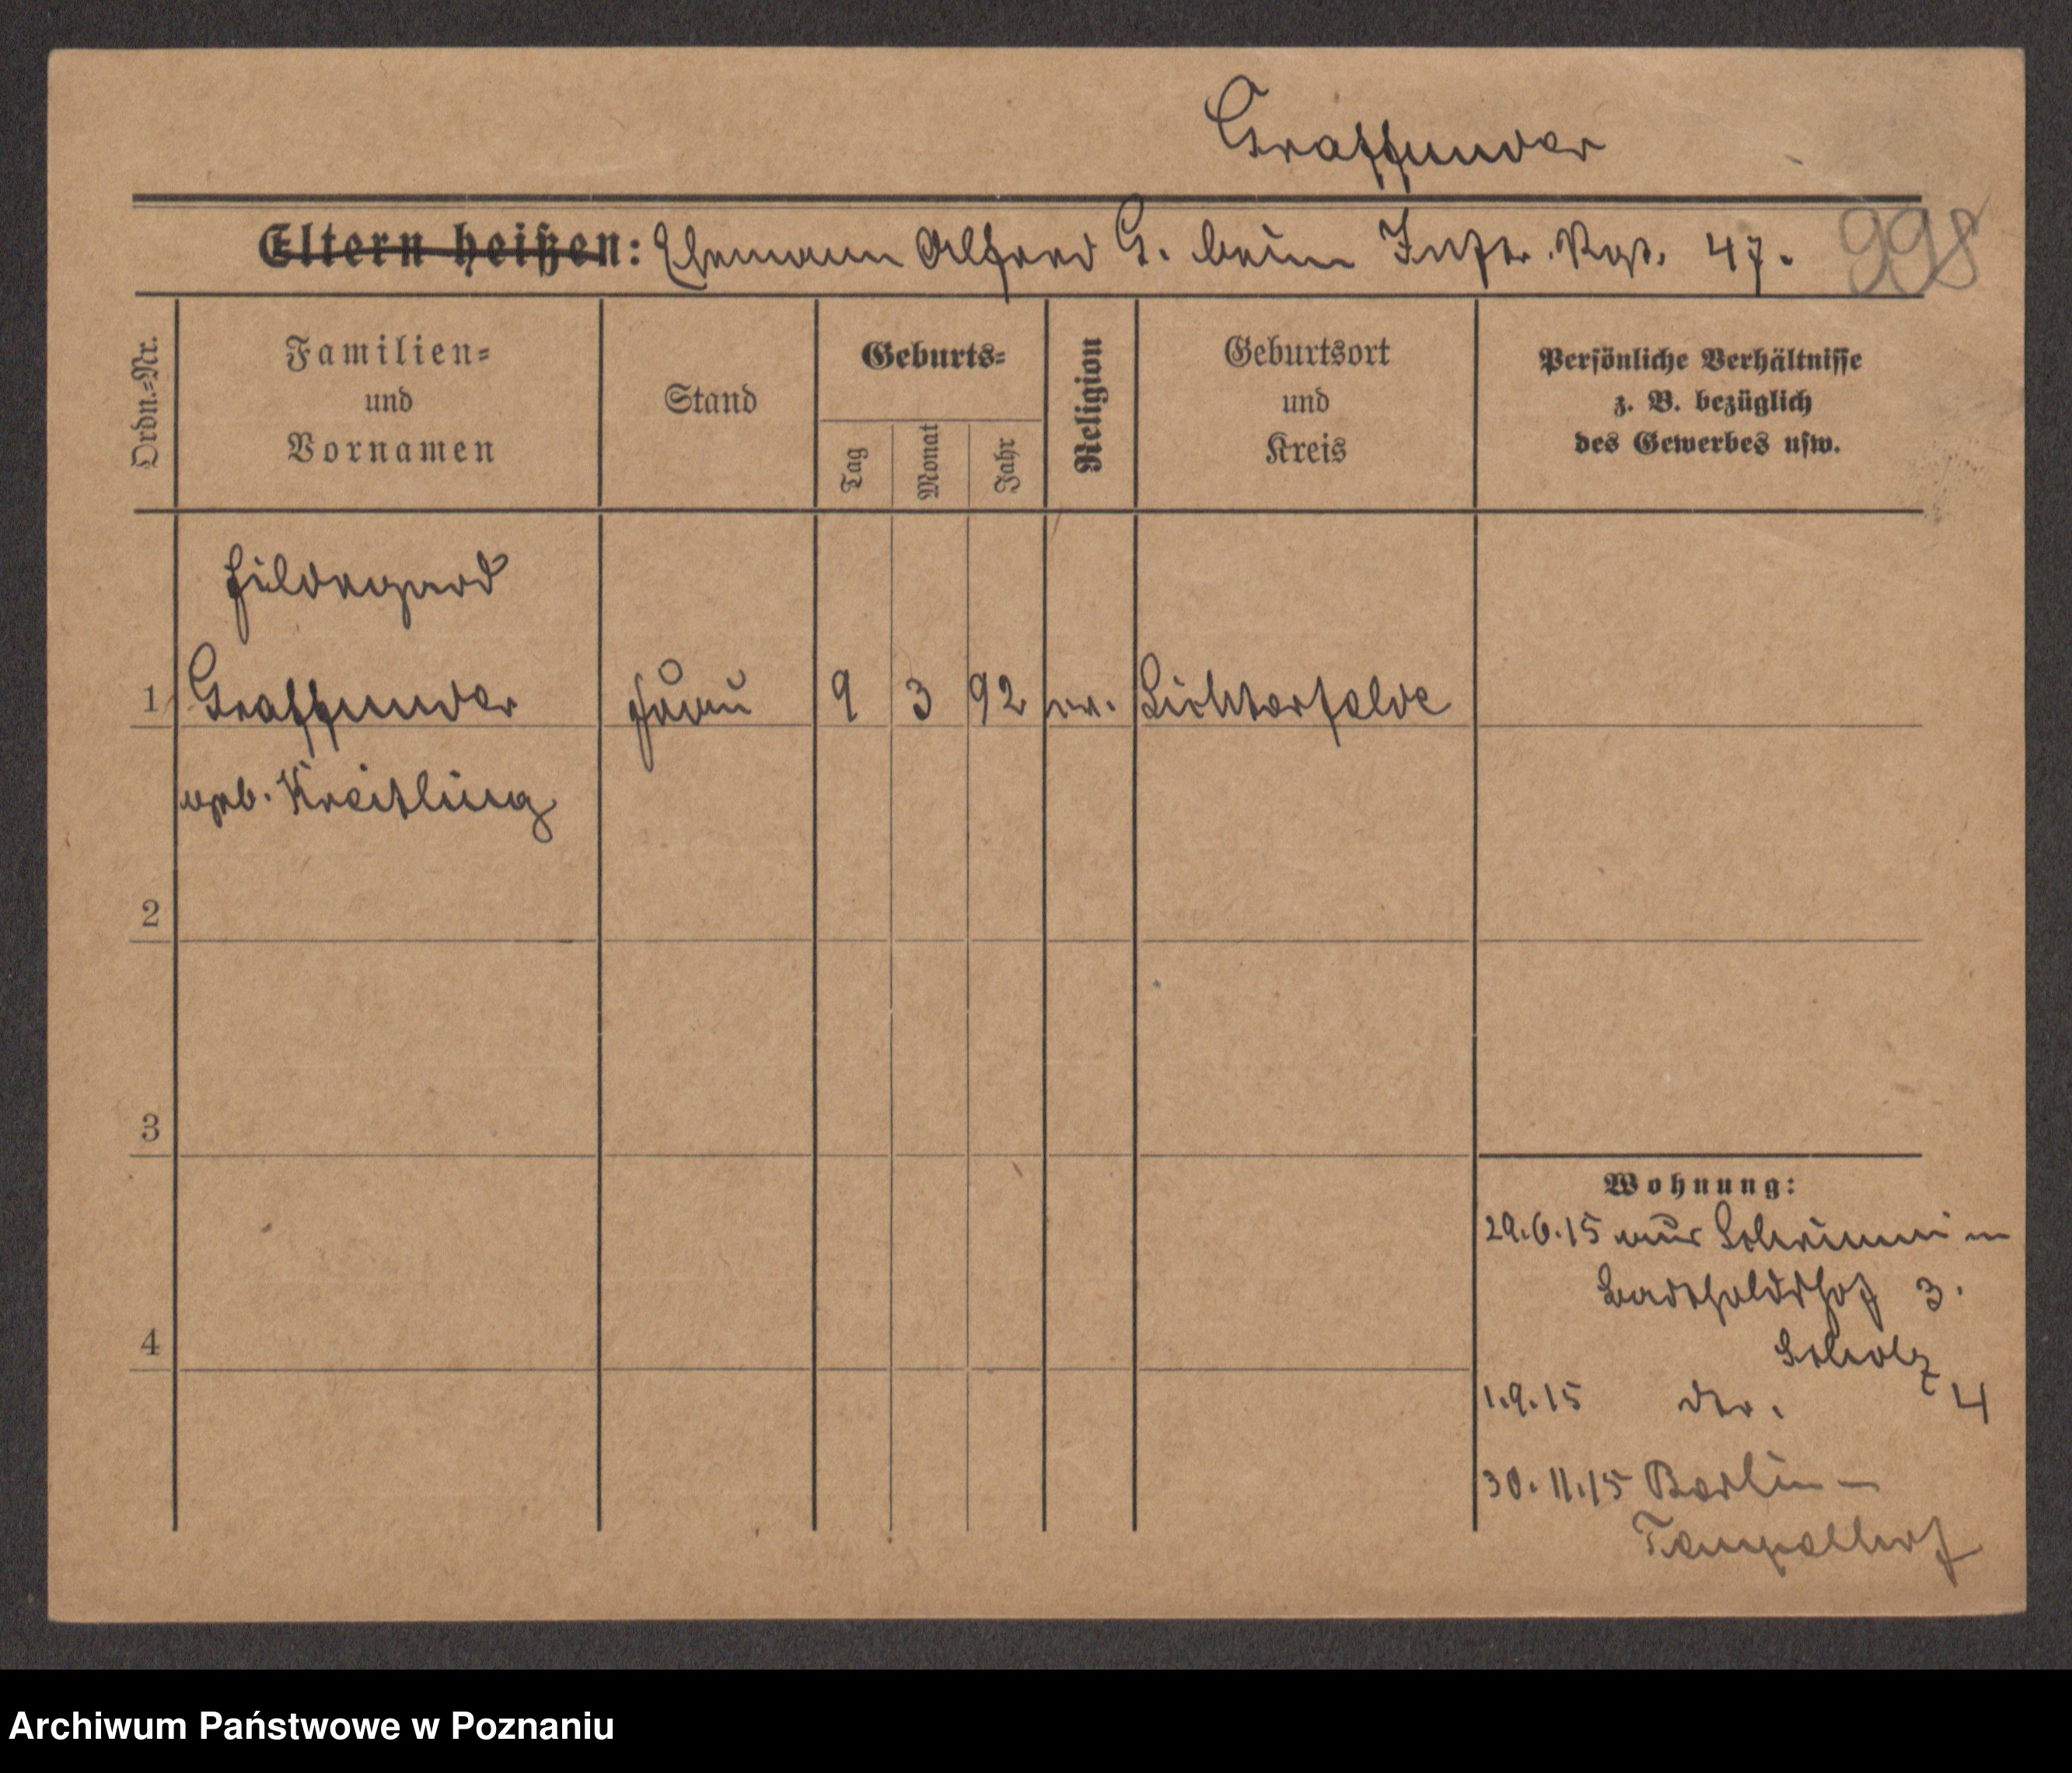 Graffunder
Eltern heißen: Ehemann Alfred G. beim Inftr. Rgt. 47.
998
Ordn.=Nr.
Familien=
und
Vornamen
Stand
Geburts=
Tag
Monat
Jahr
Religion
Geburtsort
und
Kreis
Persönliche Verhältnisse
z. B. bezüglich
des Gewerbes usw.
Hildegard
1 Graffunder Frau 9 3 92 ev. Lichterfelde
geb. Kreitling
2
3
4
Wohnung:
29.6.15 aus Schrimm in
Bartholdshof 3.
Scholz
1.9.15 dto. 4
30.11.15 Berlin-
Tempelhof
Archiwum Państwowe w Poznaniu